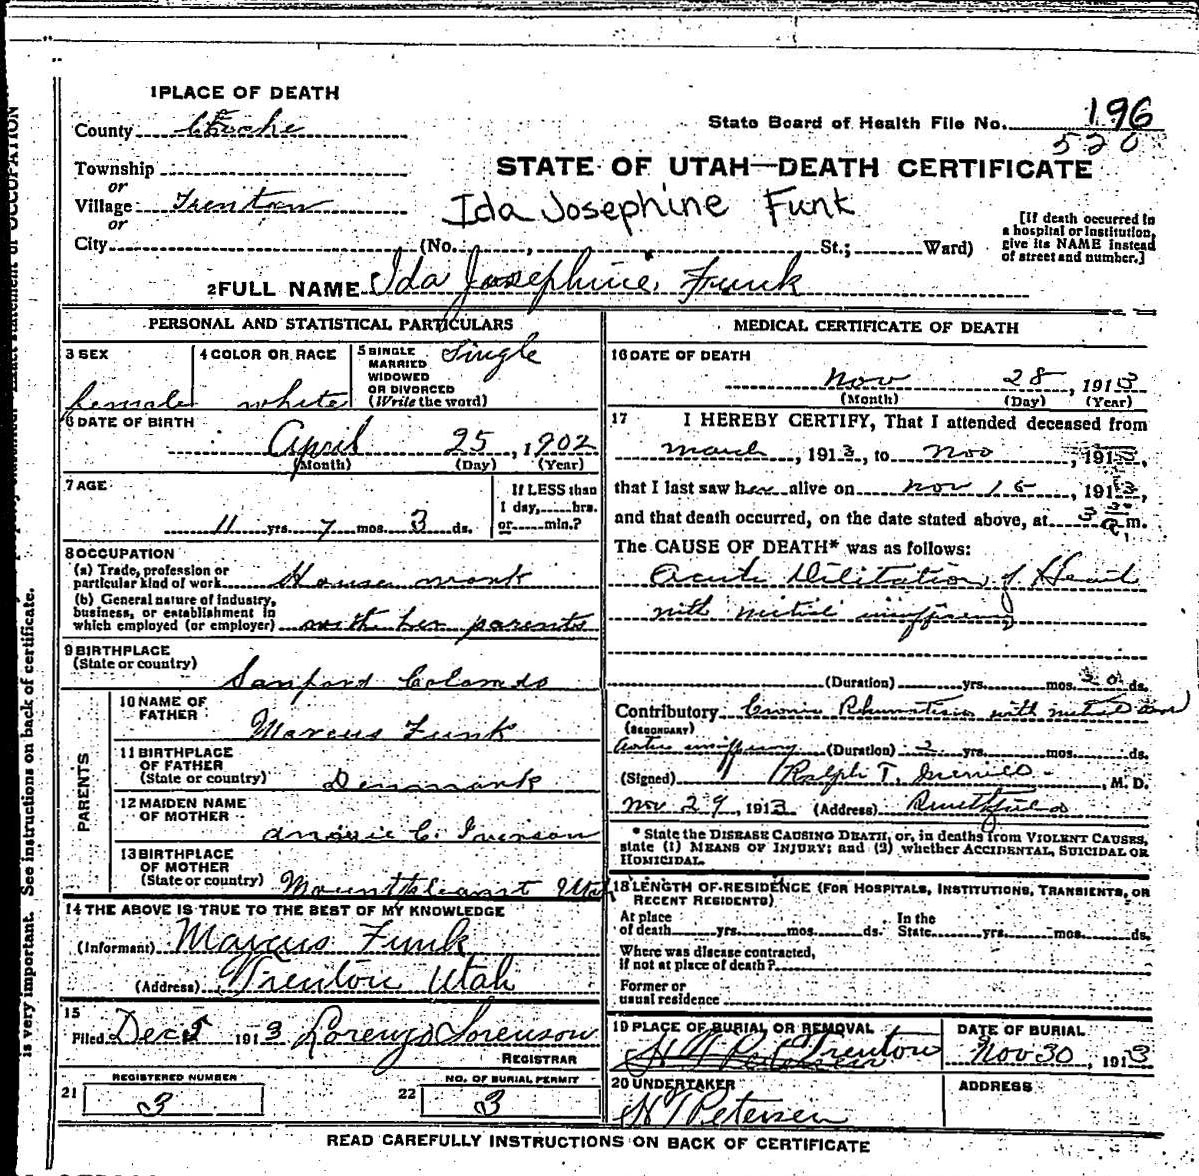 1 PLACE OF DEATH
County Cache
State Board of Health File No. 196
520
Township
or
Village Trenton
or
City (No. , St.; Ward)
STATE OF UTAH—DEATH CERTIFICATE
Ida Josephine Funk
[If death occurred in
a hospital or institution,
give its NAME instead
of street and number.]
2 FULL NAME Ida Josephine Funk
PERSONAL AND STATISTICAL PARTICULARS
3 SEX
female
4 COLOR OR RACE
white
5 SINGLE
MARRIED
WIDOWED
OR DIVORCED
(Write the word)
Single
6 DATE OF BIRTH
April 25, 1902
(Month) (Day) (Year)
7 AGE
11 yrs. 7 mos. 3 ds.
If LESS than
1 day, hrs.
or min.?
8 OCCUPATION
(a) Trade, profession or
particular kind of work House work
(b) General nature of industry,
business, or establishment in
which employed (or employer) with her parents
9 BIRTHPLACE
(State or country)
Sanford Colorado
PARENTS
10 NAME OF
FATHER
Marcus Funk
11 BIRTHPLACE
OF FATHER
(State or country)
Denmark
12 MAIDEN NAME
OF MOTHER
C.
13 BIRTHPLACE
OF MOTHER
(State or country)
Mount Pleasant Utah
14 THE ABOVE IS TRUE TO THE BEST OF MY KNOWLEDGE
(Informant) Marcus Funk
(Address) Trenton Utah
15
Filed Dec 5 1913 Lorenzo Sorenson
REGISTRAR
REGISTERED NUMBER
21 3
NO. OF BURIAL PERMIT
22 3
MEDICAL CERTIFICATE OF DEATH
16 DATE OF DEATH
Nov 28, 1913
(Month) (Day) (Year)
17 I HEREBY CERTIFY, That I attended deceased from
march, 1913, to Nov, 1913,
that I last saw her alive on Nov 16, 1913,
and that death occurred, on the date stated above, at m.
The CAUSE OF DEATH* was as follows:
Acute Dilitation of Heart
with mitral
(Duration) yrs. mos. ds.
Contributory Rhumatism with
(SECONDARY)
(Duration) yrs. mos. ds.
(Signed) Ralph T. Merrill, M. D.
Nov 29, 1913 (Address) Smithfield
* State the DISEASE CAUSING DEATH, or, in deaths from VIOLENT CAUSES,
state (1) MEANS OF INJURY; and (2) whether ACCIDENTAL, SUICIDAL OR
HOMICIDAL.
18 LENGTH OF RESIDENCE (FOR HOSPITALS, INSTITUTIONS, TRANSIENTS, OR
RECENT RESIDENTS)
At place
of death yrs. mos. ds.
In the
State yrs. mos. ds.
Where was disease contracted,
if not at place of death?
Former or
usual residence
19 PLACE OF BURIAL OR REMOVAL
Trenton
DATE OF BURIAL
Nov 30, 1913
20 UNDERTAKER
Petersen
ADDRESS
READ CAREFULLY INSTRUCTIONS ON BACK OF CERTIFICATE
is very important. See instructions on back of certificate.